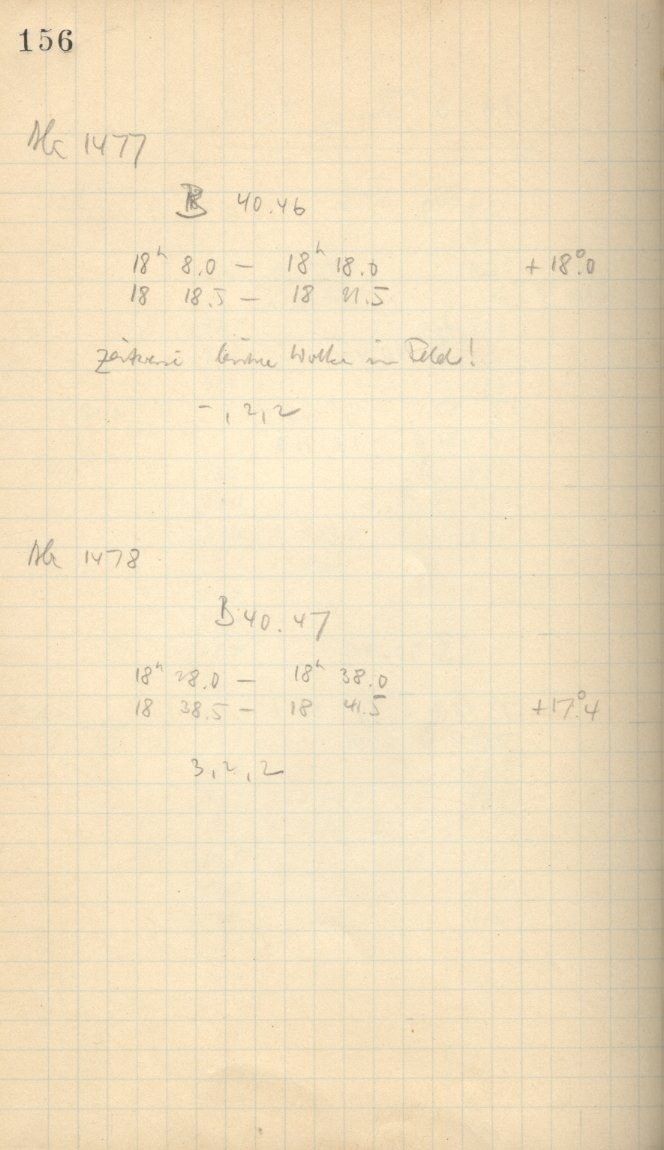 156
1477
B 40.46
18ʰ 8.0 — 18ʰ 18.0 +18°.0
18 18.5 — 18 21.5
zeitweise leichte Wolken im Feld!
-, 2, 2
1478
B 40.47
18ʰ 28.0 — 18ʰ 38.0
18 38.5 — 18 41.5 +17°.4
3, 2, 2